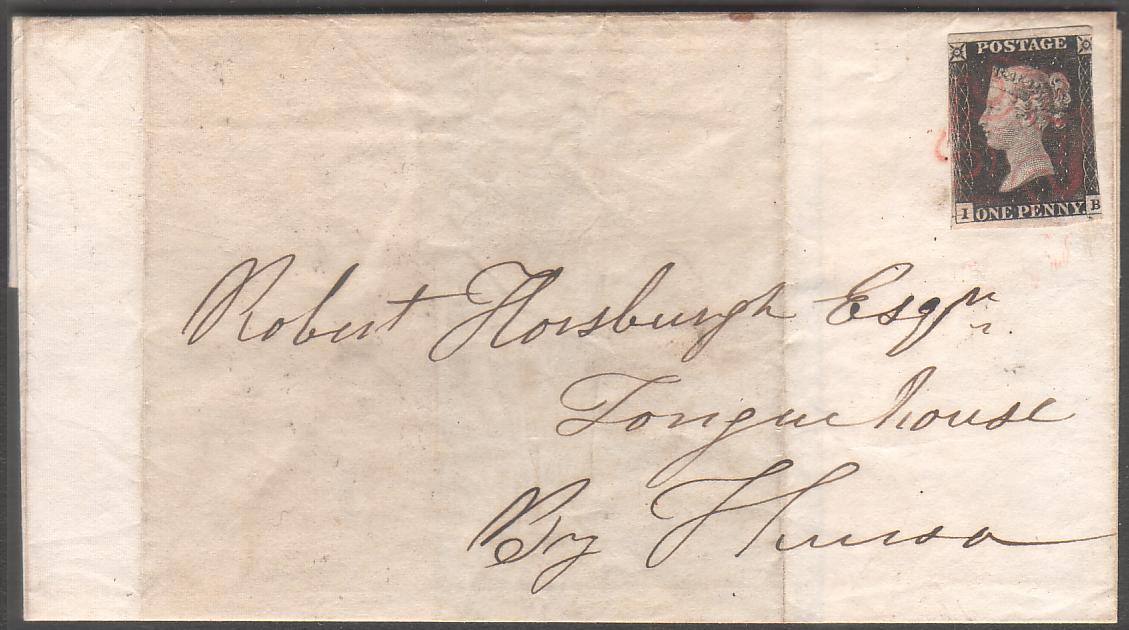 POSTAGE
I ONE PENNY B
Robert Horsburgh Esqr
Tongue house
By Thurso